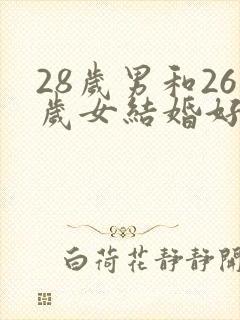 28歲男和26
歲女結婚好
白荷花靜靜開